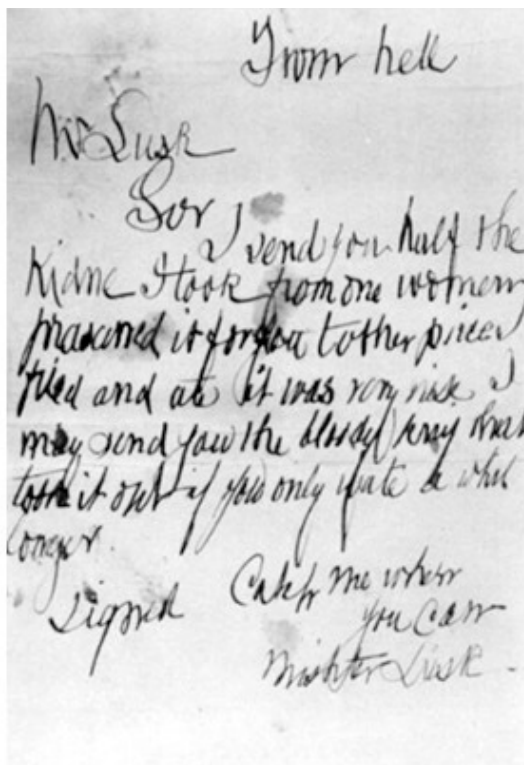 From hell
Mr Lusk
Sor
I send you half the
Kidne I took from one women
prasarved it for you tother piece I
fried and ate it was very nise I
may send you the bloody knif that
took it out if you only wate a whil
longer.
Signed Catch me when
you Can
Mishter Lusk.